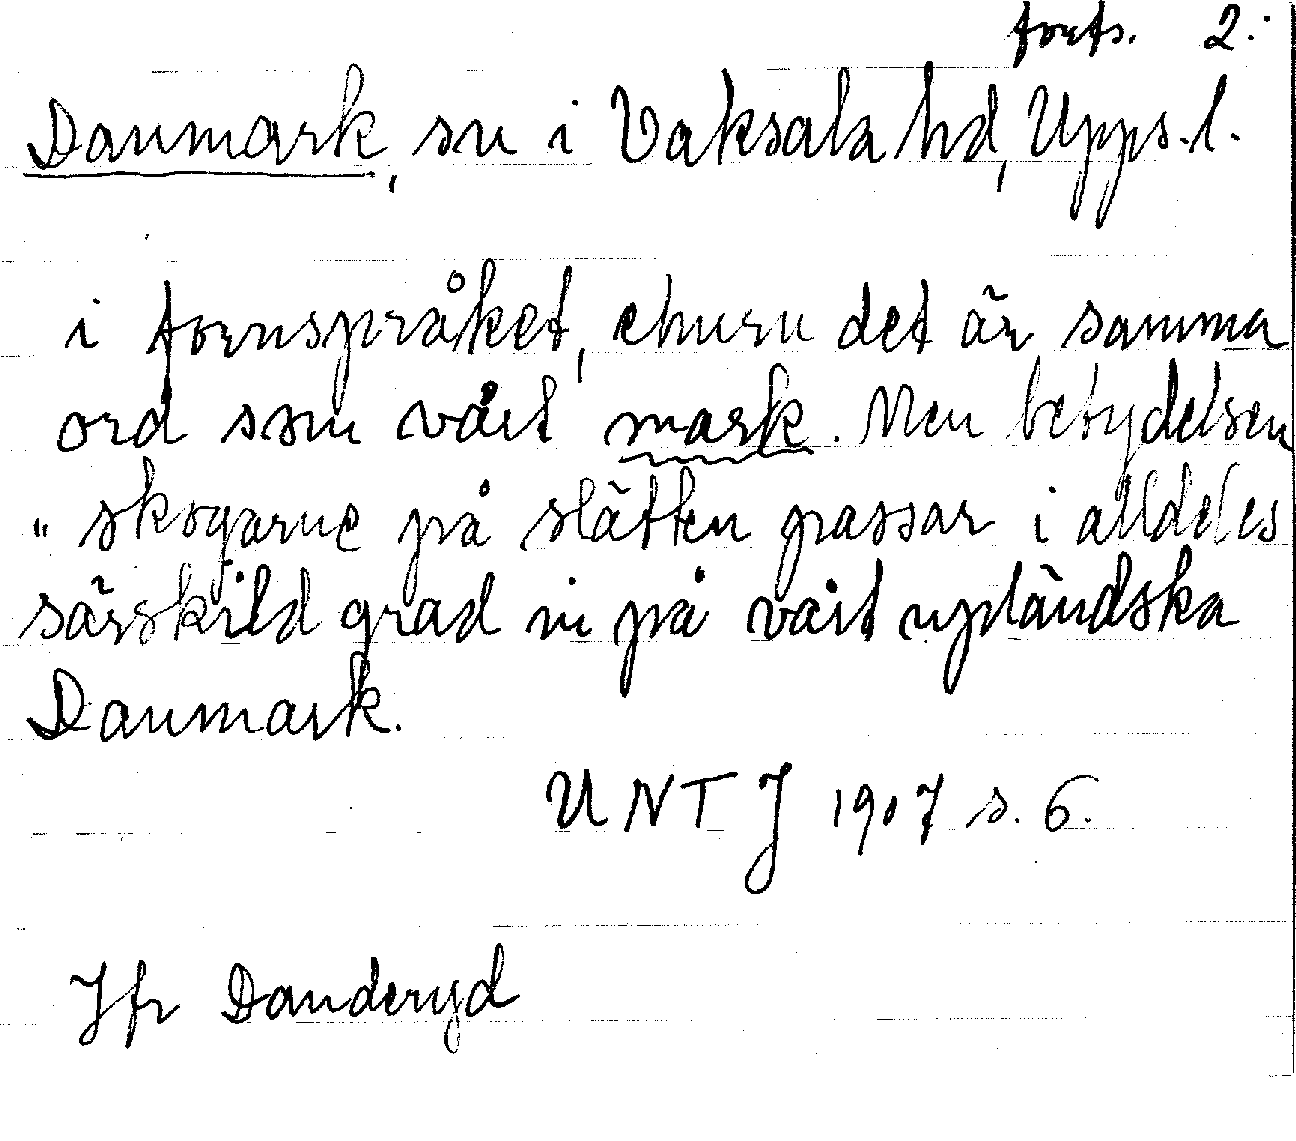 forts. 2:
Danmark, sn i Vaksala hd, Upps.l.
i fornspråket, churu det är samma
ord som vårt mark. Men betydelsen
"skogarne på slätten passar i alldeles
särskild grad in på vårt uppländska
Danmark.
UNT J 1907 s. 6.
Jfr Danderyd